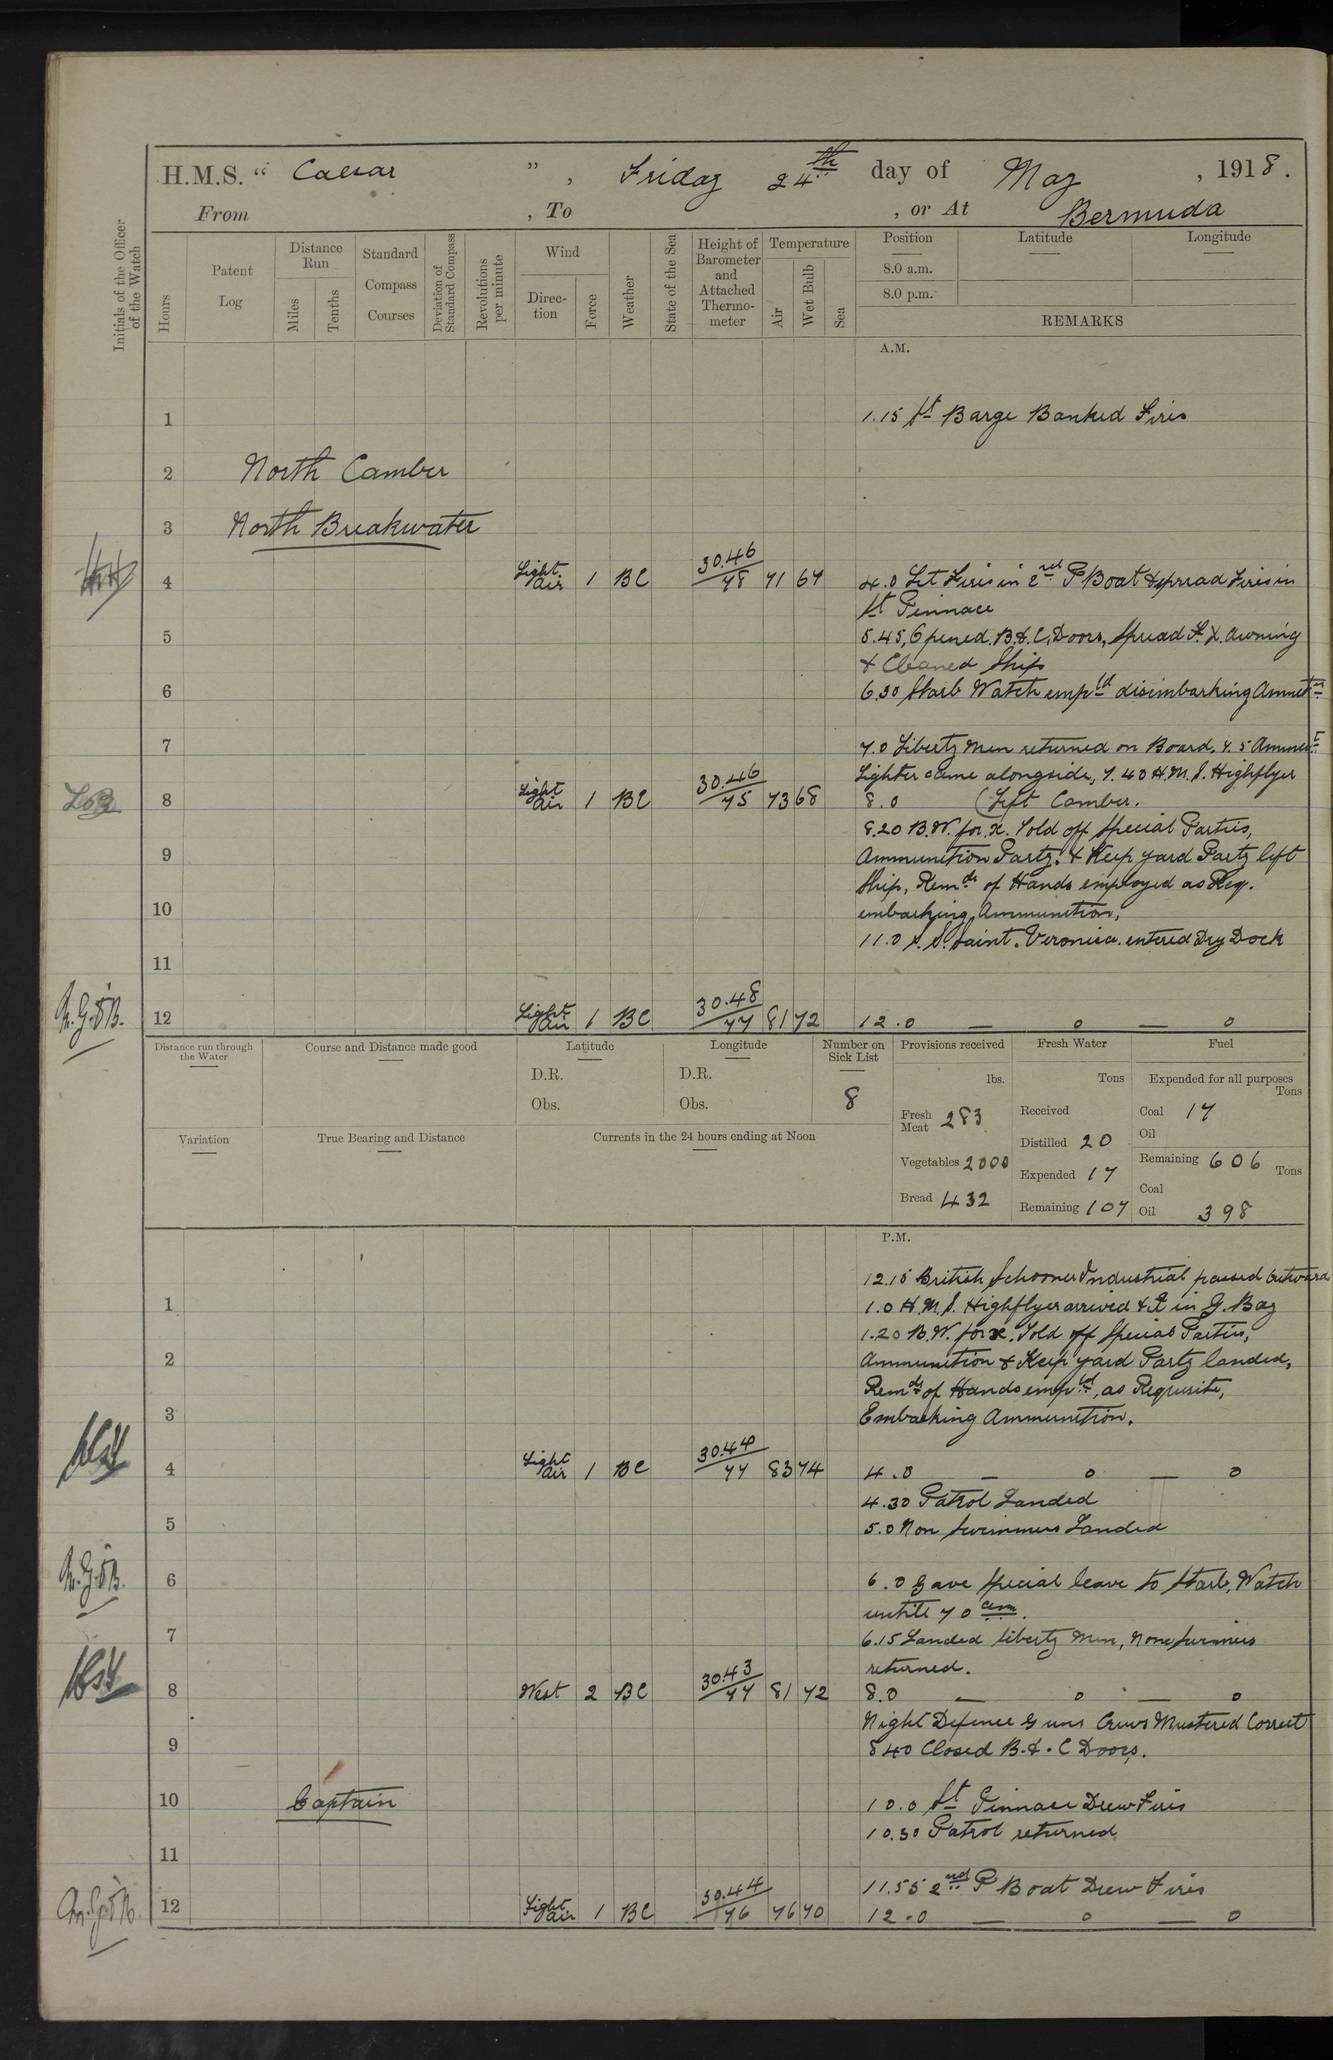 H.M.S. “ Caesar ” , Friday 24th day of May , 1918.
From , To , or At Bermuda
Initials of the Officer of the Watch
Hours
Patent Log
Distance Run
Miles
Tenths
Standard Compass Courses
Deviation of Standard Compass
Revolutions per minute
Wind
Direc-tion
Force
Weather
State of the Sea
Height of Barometer and Attached Thermo-meter
Temperature
Air
Wet Bulb
Sea
Position
Latitude
Longitude
8.0 a.m.
8.0 p.m.
REMARKS
A.M.
1 1.15 St Barge Banked Fires
2 North Camber
3 North Breakwater
4 Light Air 1 BC 30.46/78 71 67 4.0 Lit Fires in 2nd P Boat & spread Fires in
St Pinnace
5 5.45, Opened B.& C. Doors, Spread F. X. Awning
& Cleaned Ship
6 6.30 Starb Watch emp'ld disimbarking Ammt'n
7 7.0 Liberty Men returned on Board. 7.5 Ammun't
Lighter came alongside, 7.40 H.M.S. Highflyer
8 Light Air 1 BC 30.46/75 73 68 8.0 (Left Camber.
8.20 B.W. for x. Told off Special Parties,
9 Ammunition Party. & Keep yard Party left
Ship, Rem'dr of Hands employed as Req.
10 embarking Ammunition,
11.0 S.S. Saint. Veronica. entered Dry Dock
11
12 Light Air 1 BC 30.48/77 81 72 12.0 — 0 — 0
Distance run through the Water
Course and Distance made good
Latitude
D.R.
Obs.
Longitude
D.R.
Obs.
Number on Sick List
8
Provisions received
lbs.
Fresh Meat 283
Vegetables 2000
Bread 432
Fresh Water
Tons
Received
Distilled 20
Expended 17
Remaining 107
Fuel
Expended for all purposes
Tons
Coal 17
Oil
Remaining 606 Tons
Coal
Oil 398
Variation
True Bearing and Distance
Currents in the 24 hours ending at Noon
P.M.
12.15 British Schooner Industrial passed Outward
1 1.0 H.M.S. Highflyer arrived & in G. Bay
1.20 B.W. for x. Told off Special Parties,
2 Ammunition & Keep yard Party landed,
Rem'dr of Hands emp'ld, as Requisite,
3 Embarking Ammunition.
4 Light Air 1 BC 30.44/77 83 74 4.0 — 0 — 0
4.30 Patrol Landed
5 5.0 Non Swimmers Landed
6 6.0 Gave Special leave to Starb. Watch
until 7 0 am.
7 6.15 Landed liberty Men, Non swimmers
returned.
8 West 2 BC 30.43/77 81 72 8.0 — 0 — 0
Night Defence Guns Crews Mustered Correct
9 8 40 Closed B.&.C Doors.
10 Captain 10.0 St Pinnace Drew Fires
10.30 Patrol returned
11
11.55 2nd P Boat Drew Fires
12 Light Air 1 BC 30.44/76 76 70 12.0 — 0 — 0